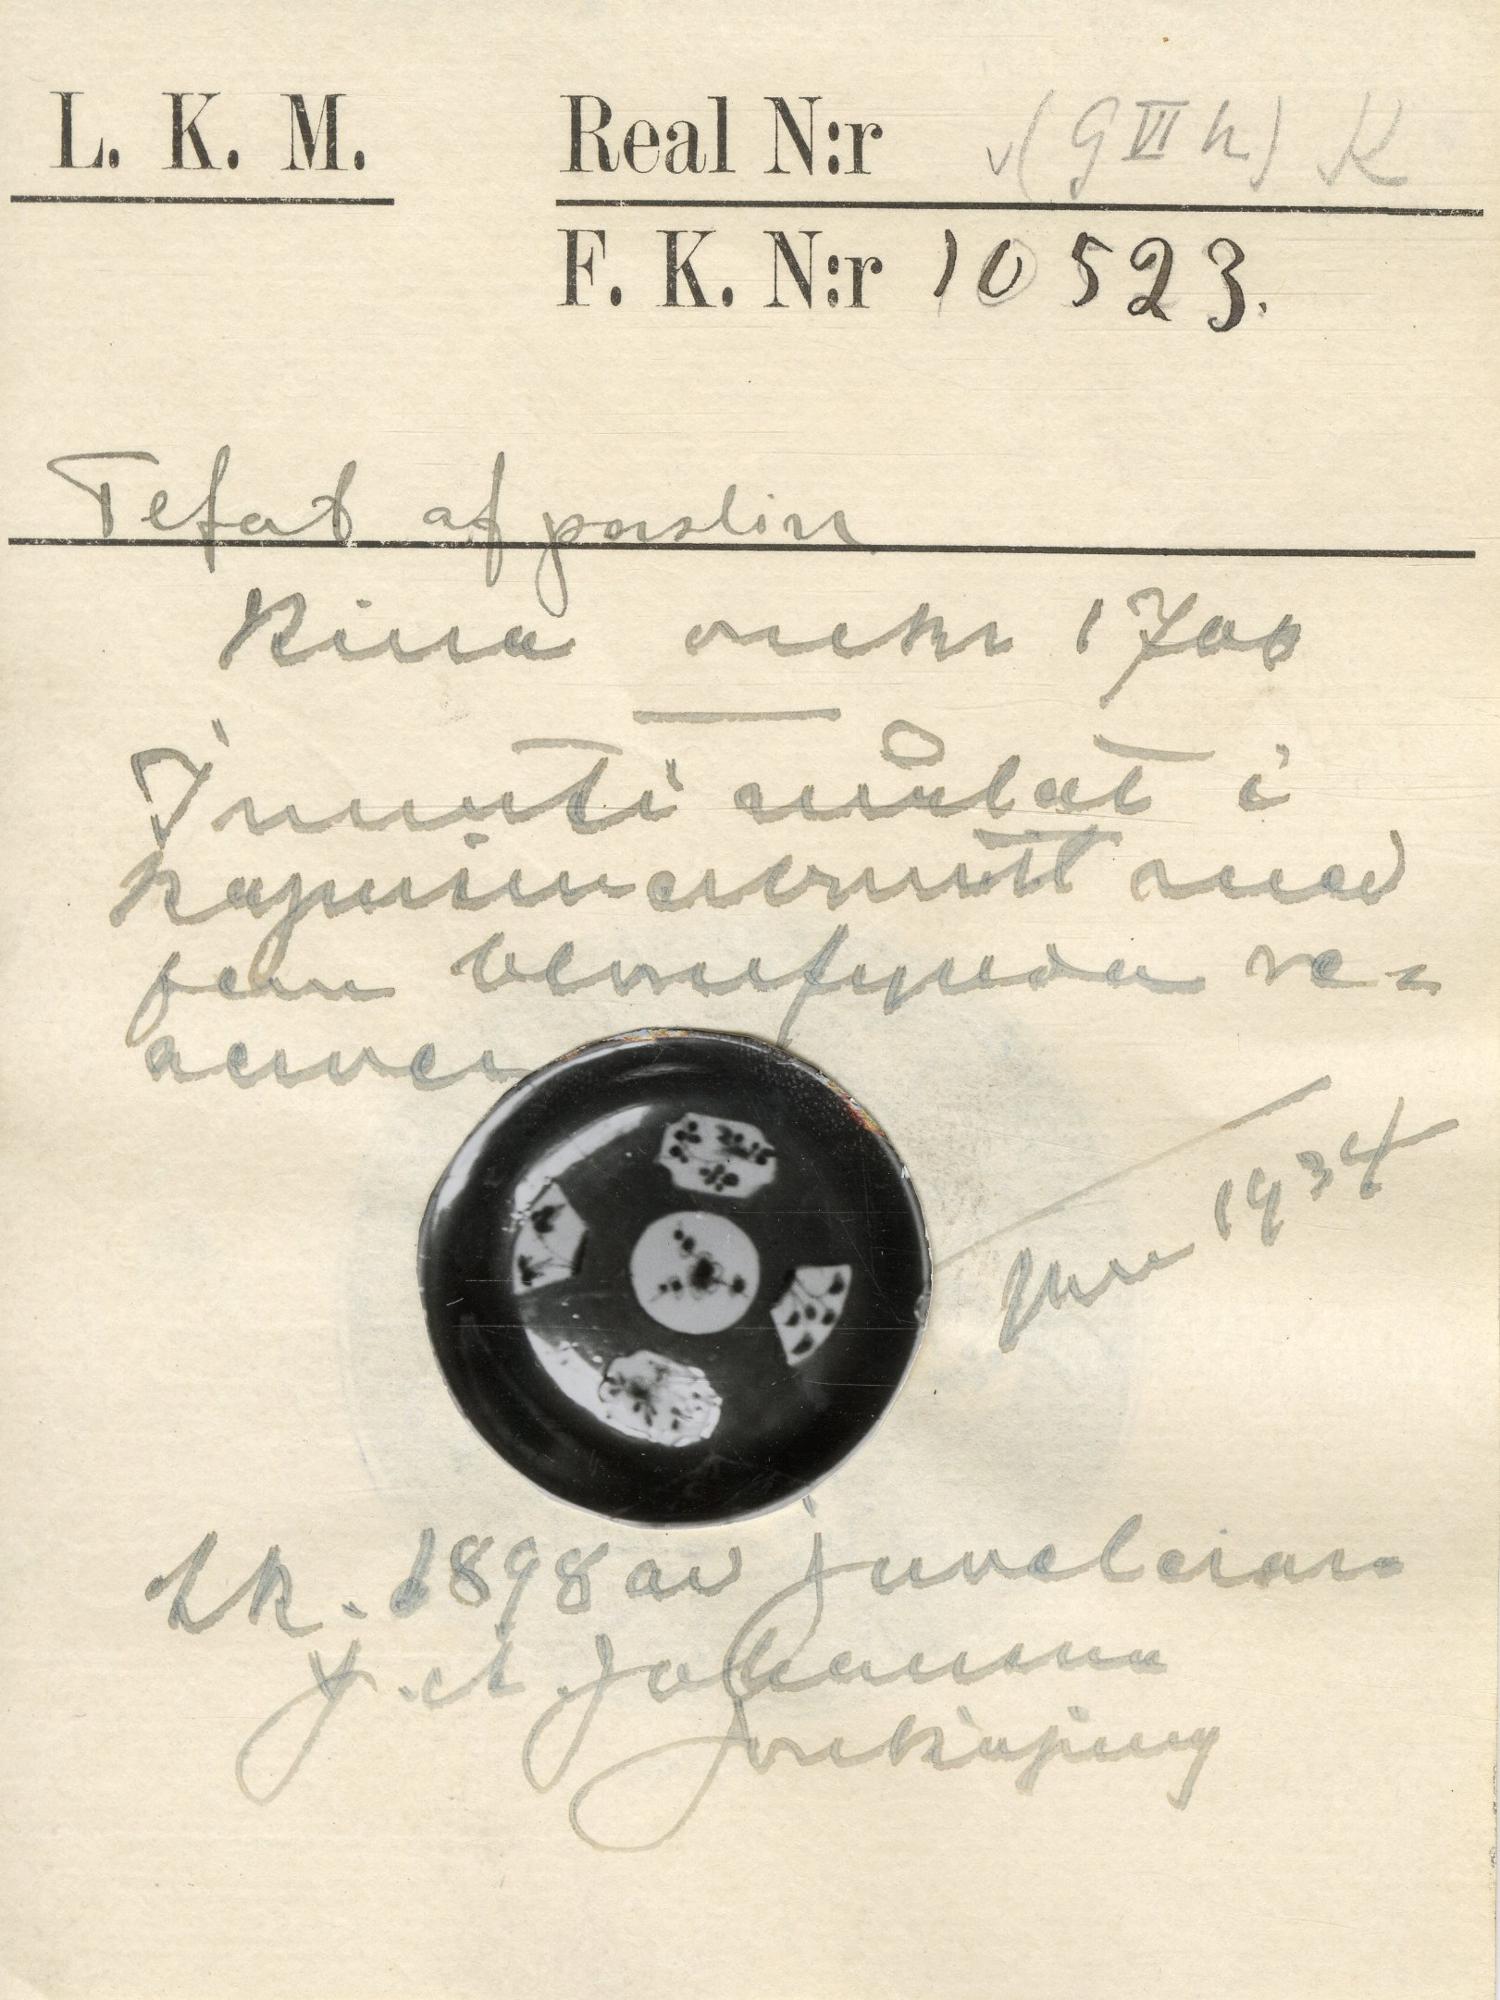 L. K. M.
Real N:r v (G VI h) K
F. K. N:r 10523.
Tefat af porslin
Kina omkr 1700
Inuti målat i
kapucinerbrunt med
fem blomfyllda re-
server
1934
Ink. 1898 av juveleraren
J. A. Johansson
Jönköping